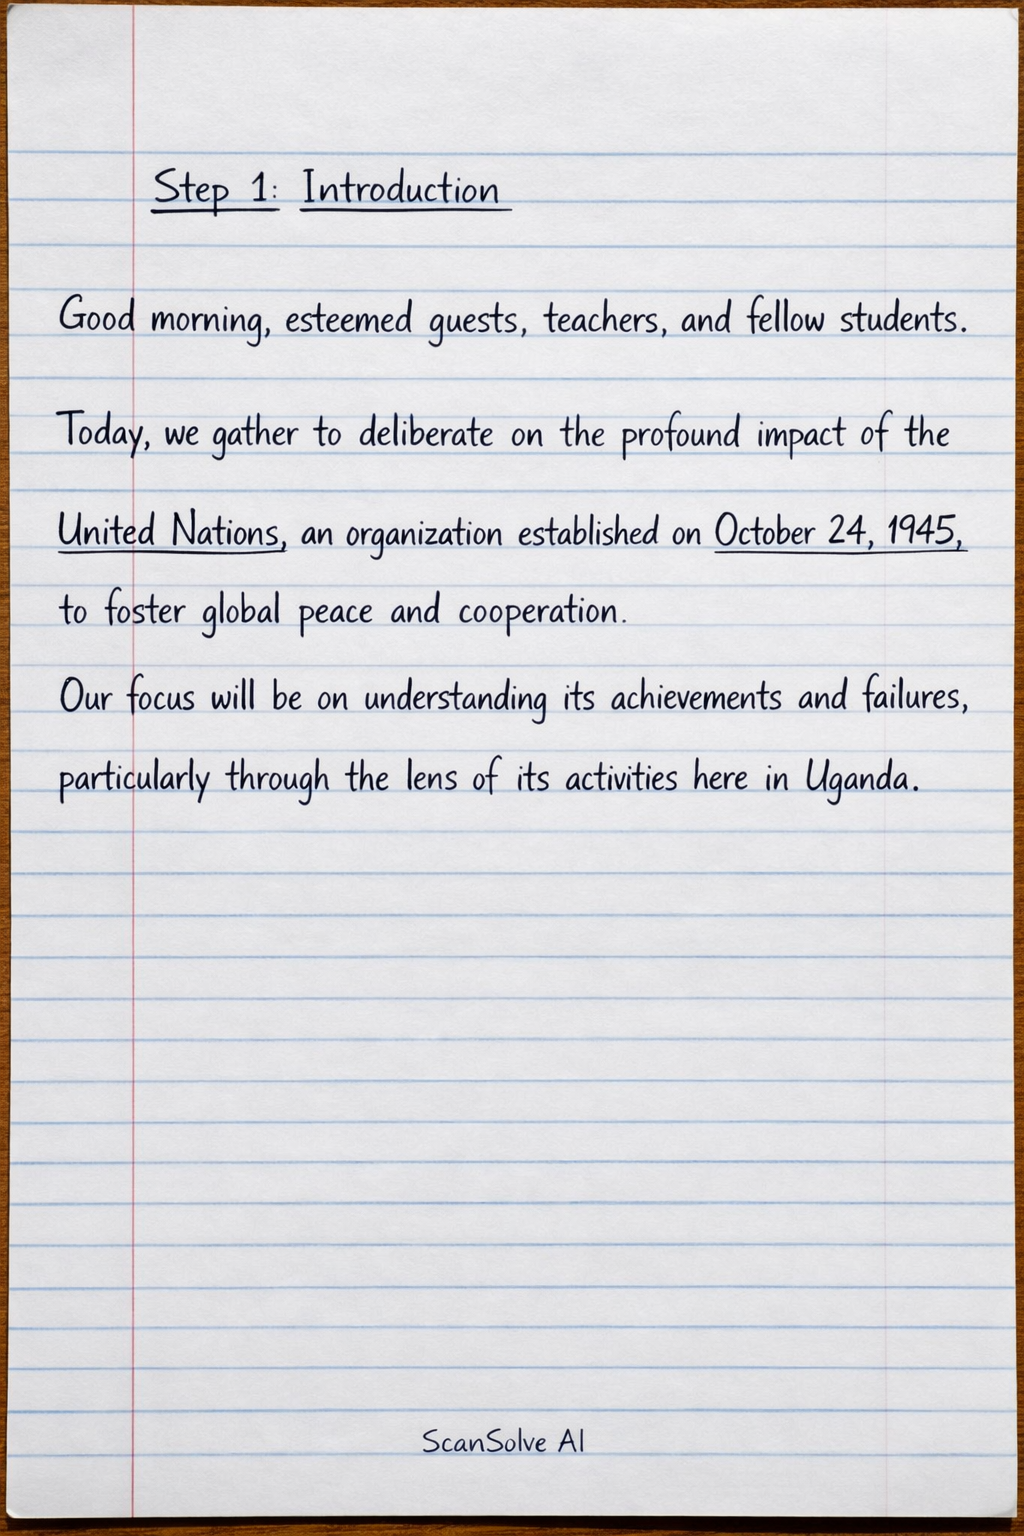 Step 1: Introduction
Good morning, esteemed guests, teachers, and fellow students.
Today, we gather to deliberate on the profound impact of the
United Nations, an organization established on October 24, 1945,
to foster global peace and cooperation.
Our focus will be on understanding its achievements and failures,
particularly through the lens of its activities here in Uganda.
ScanSolve AI